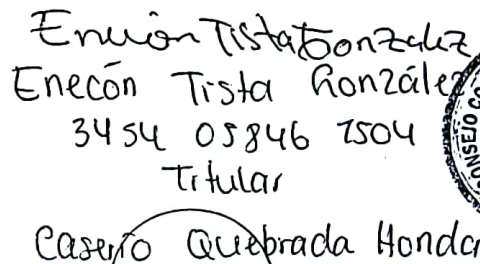 Enecón Tista Gonzalez
Enecón Tista González
3454 05846 1504
Titular
Caserío Quebrada Honda
CONSEJO CO